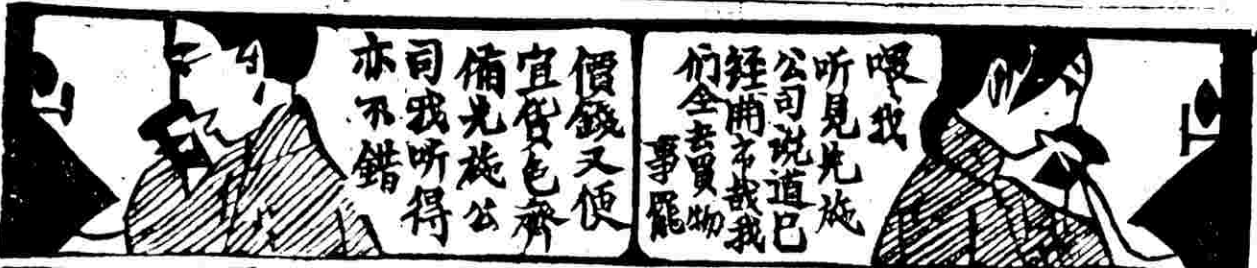 喂我
听見先施
公司说道已
経開市哉我
们全去買物
事罷
價錢又便
宜貨色齊
備先施公
司我听得
亦不錯